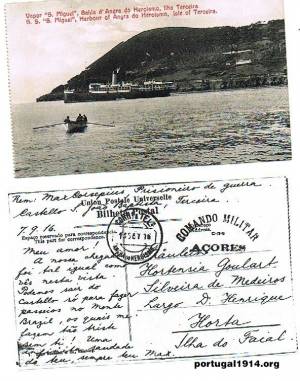 Vapor "S. Miguel", Bahia d'Angra do Heroismo, Ilha Terceira
S. S. "S. Miguel", Harbour of Angra do Heroismo, Isle of Terceira.
Rem: Max Corsepius Prisioneiro de guerra
Castello S. João Baptista Terceira
Union Postale Universelle
Bilhete Postal
7.9.16.
Espaço reservado para correspondencia
This part for correspondence.
COMANDO MILITAR
DOS
AÇORES
Meu amor!
A nossa chegada
foi tal igual como
vês nesta vista
Podemos sair do
Castello só para fazer
passeios no monte
Brazil, os quais me
bem ti! Uma
do teu, sempre teu Max.
Fraulein
Hortensia Goulart
Silveira de Medeiros
Largo D. Henrique
Horta
Ilha do Faial
portugal1914.org